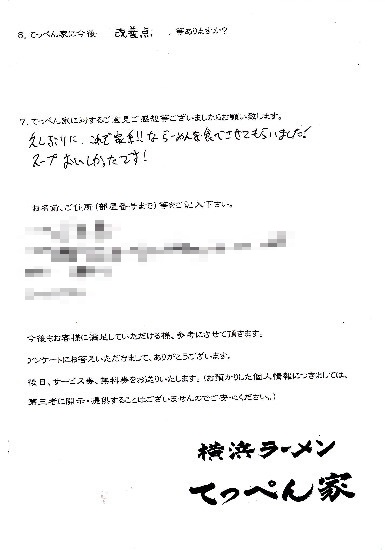 6. てっぺん家に今後 改善点 等ありますか?
7. てっぺん家に対するご意見ご感想等ございましたらお願い致します。
久しぶりに、これぞ家系!!ならーめんを食べさせてもらいました!
スープおいしかったです!
お名前、ご住所(部屋番号まで)等をご記入下さい。
今後もお客様に満足していただける様、参考にさせて頂きます。
アンケートにお答えいただきまして、ありがとうございます。
後日、サービス券、無料券をお送りいたします。(お預かりした個人情報につきましては、
第三者に開示・提供することはございませんのでご安心ください。)
横浜ラーメン
てっぺん家